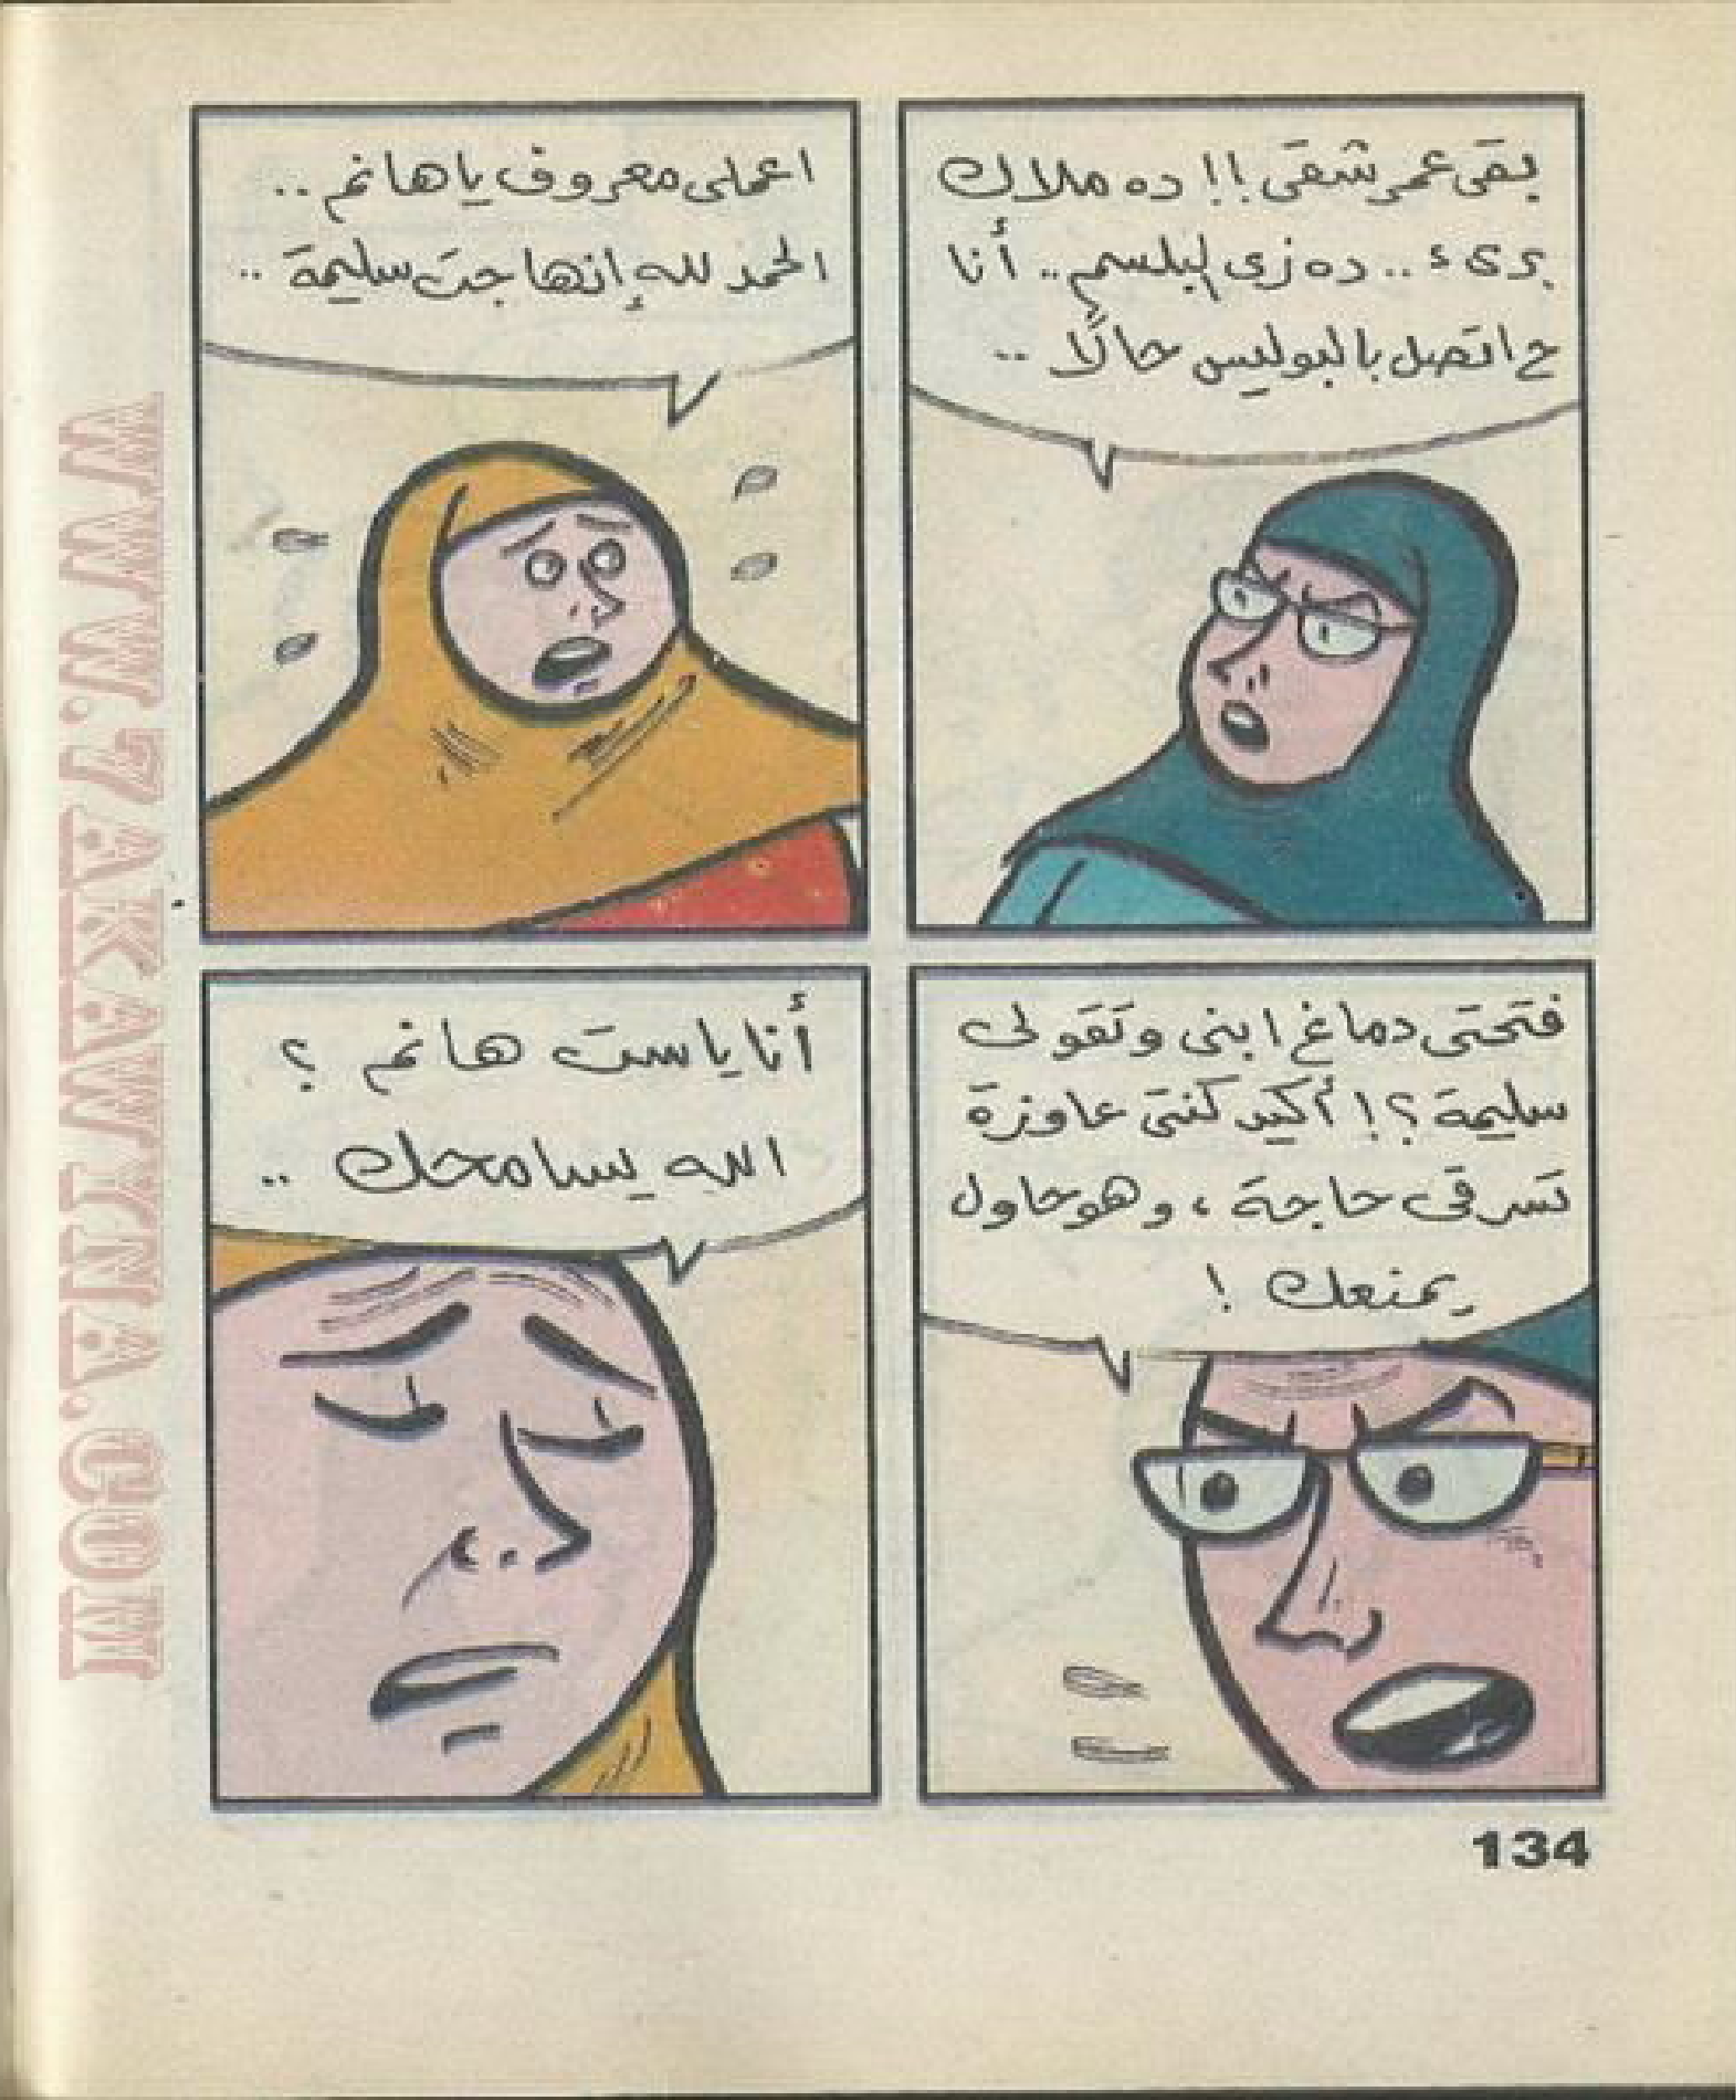 بقى عمر شقى !! ده ملاك
برىء .. ده زى البلسم .. أنا
ح اتصل بالبوليس حالًا ..
اعملى معروف يا هانم ..
الحمد لله إنها جت سليمة ..
فتحتى دماغ ابنى وتقولى
سليمة ؟! أكيد كنتى عاوزة
تسرقى حاجة ، وهو حاول
يمنعك !
أنا يا ست هانم ؟
الله يسامحك ..
134
WWW.7AKAWITNA.COM